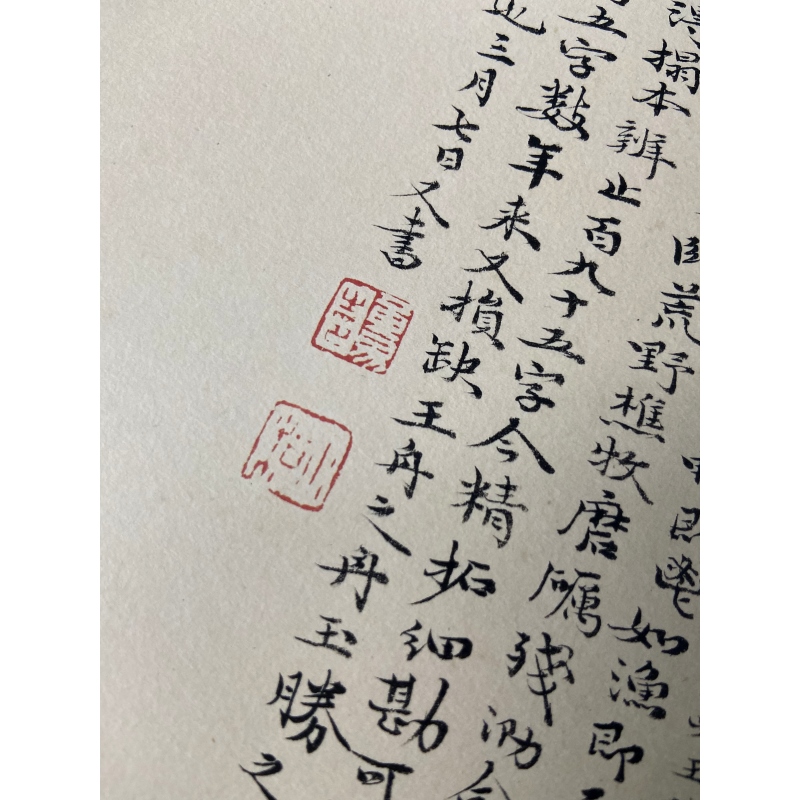 即鬱如漁即
荒野樵牧磨礪殘泐
搨本辨止百九十五字今精拓細勘可
五字数年来又損缺王舟之舟玉勝之
也三月七日又書